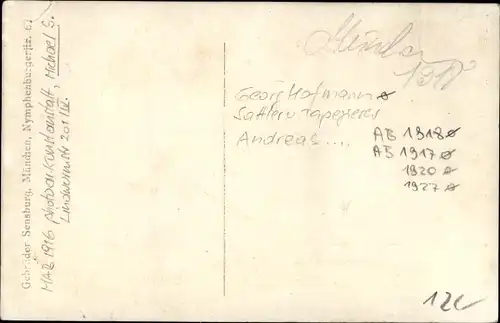 Gebrüder Sensburg, München, Nymphenburgerstr. 67
MAB 1916 photogr. Kunstanstalt, Michael S.
Lindwurmstr 201/IV.
Georg Hofmann ø
Sattler u Tapezierer
Andreas ....
AB 1918 ø
AB 1917 ø
1920 ø
1927 ø
12€